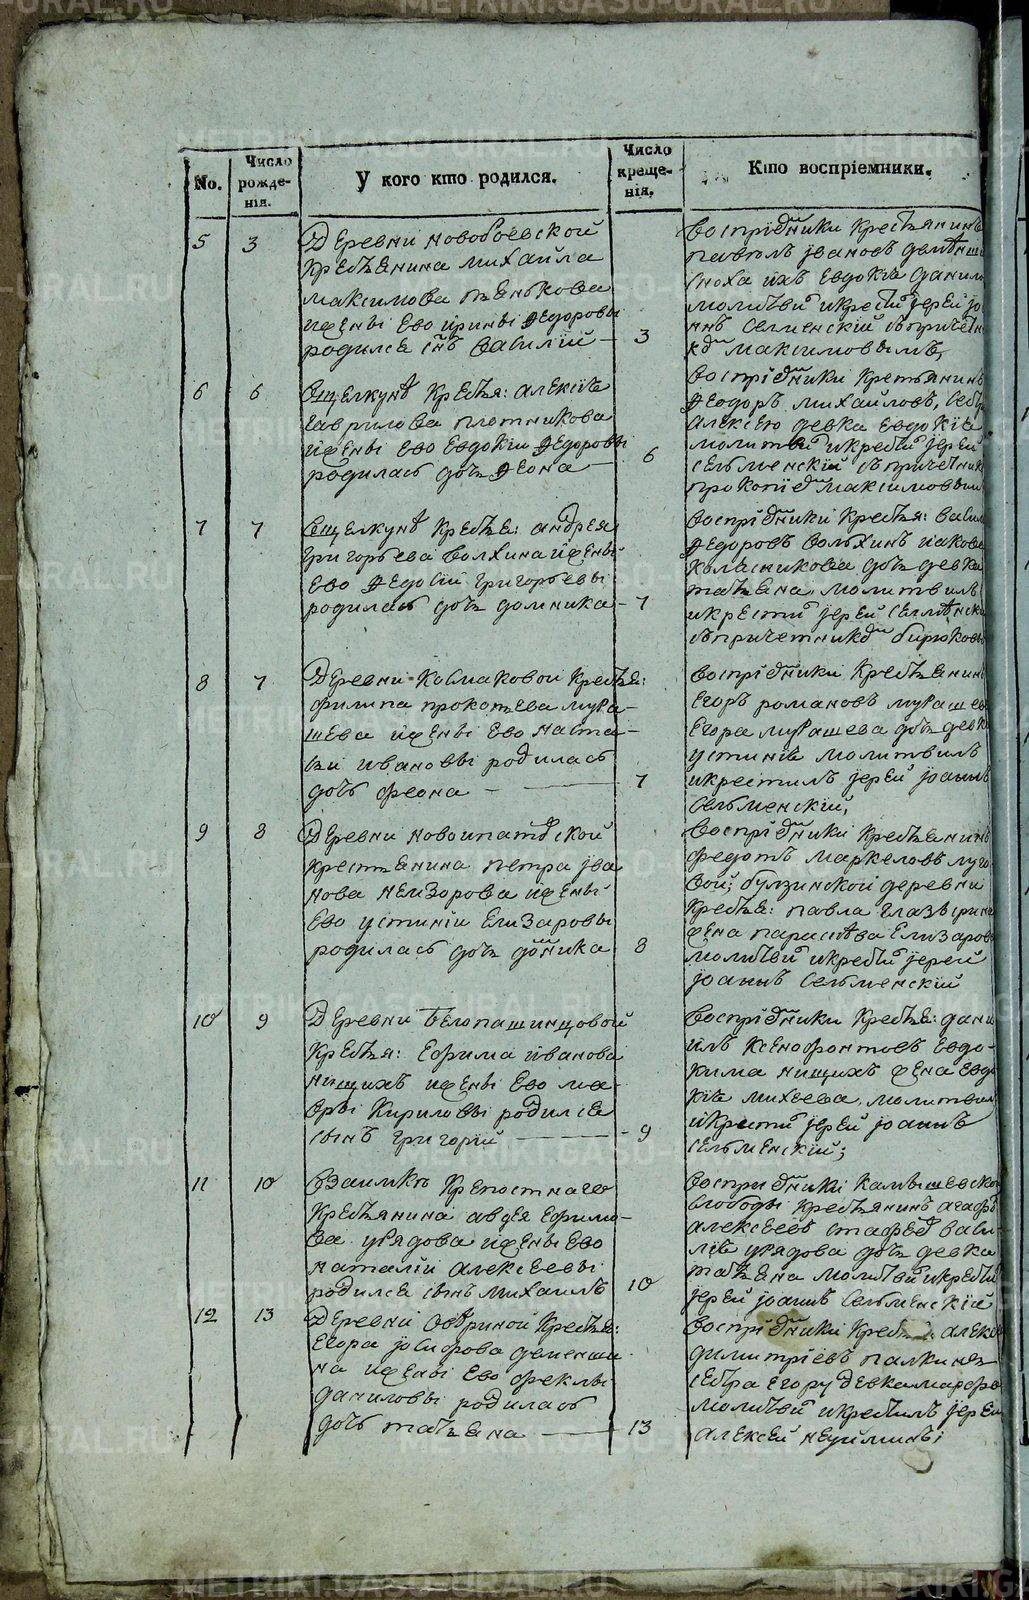 METRIKI.GASO-URAL.RU
No.
Число рожденія.
У кого кто родился.
Число крещенія.
Кто воспріемники.
5 3
Деревни новобоевской
крестьянина михайла
максимова пьянькова
ижены ево ирины федоровы
родился снъ василій — 3
воспріемники крестьянинъ
павелъ ивановъ
сноха ихъ евдокіа
молитви икрести іерей
селменскій спричетни
максимовымъ,
6 6
вщелкунѣ крестья: алексѣя
гаврилова плотникова
ижены ево евдокіи федоровы
родилась дочь феона — 6
воспріемники крестьянинъ
феодоръ михайловъ,
алексею девка евдокіа
молитви икрести іерей
сельменскій спричетник
прокопіе максимовым
7 7
вщелкунѣ крестья: андрея
григорьева волхина ижены
ево федосіи григорьевы
родилась дочь домника — 7
воспріемники крестья:
федоровъ волхинъ иакова
колясникова дочь девка
татьяна, молитвилъ
икрести іерей
спричетник бирюковы
8 7
Деревни космаковой крестья:
филипа прокопьева мура-
шева ижены ево наста-
сьи ивановы родилась
дочь феона — 7
воспріемники крестьянинъ
егоръ романовъ мурашев
егора мурашева дочь девка
устиніа молитвилъ
икрестилъ іерей іоаннъ
сельменскій,
9 8
Деревни новоипатовской
крестьянина петра ива
нова неизорова ижены
ево устиніи елизаровы
родилась дочь домника 8
воспріемники крестьянинъ
федотъ маркеловъ луго
вой; булзинской деревни
крестья: павла глазырина
жена параскева елизаров
молитви икрести іерей
іоаннъ сельменскій
10 9
Деревни белопашинцовой
крестья: ефима иванова
нищихъ ижены ево ма-
вры кириловы родился
сынъ григорій — 9
воспріемники крестья: дани
илъ ксенофонтовъ евдо-
кима нищихъ жена евдо
кіа михеева, молитвил
икрести іерей іоаннъ
сельменскій;
11 10
взаимкѣ крепостнаго
крестьянина авдея ефимо-
ва урядова ижены ево
наталіи алексеевы
родился сынъ михаилъ 10
воспріемники камышевской
слободы крестьянинъ агафо
алексеевъ васи-
ліа урядова дочь девка
татьяна молитви икрести
іерей іоаннъ сельменскій
12 13
Деревни космаковой крестья:
егора іосифова деменши
на ижены ево феклы
даниловы родилась
дочь татьяна — 13
воспріемники крестья: алексе
димитріевъ палкинъ
сестра егору девка марфа
молитви икрестилъ іерей
алексей неуйминъ;